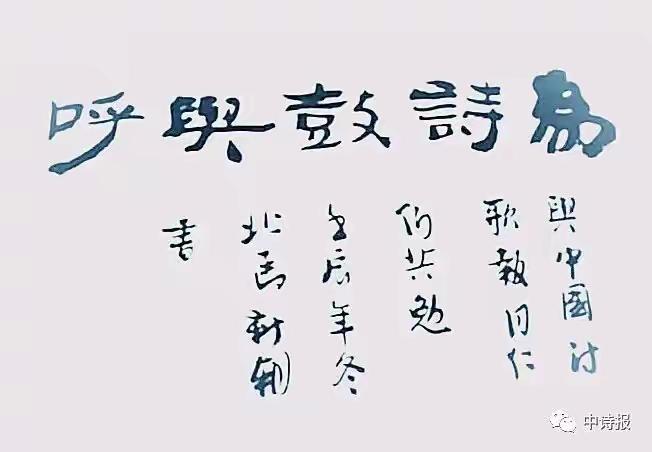 為詩鼓與呼
與中國詩
歌報同仁
们共勉
壬辰年冬
北馬新朝
書
中诗报